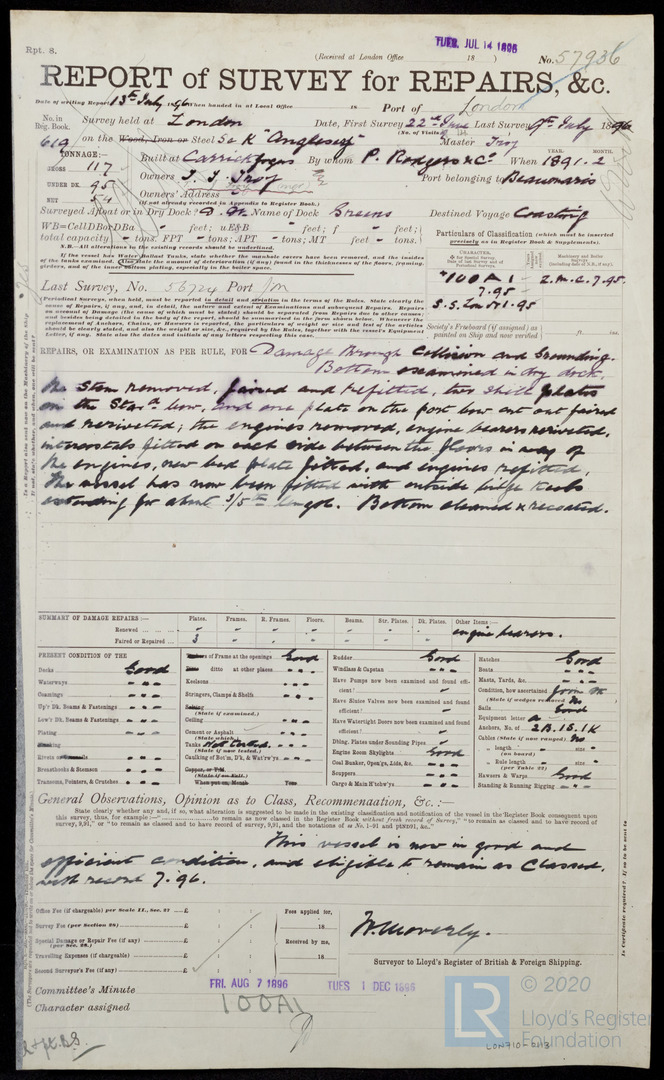 Rpt. 8.
TUES. JUL 14 1896
(Received at London Office 18 )
No. 57936
REPORT of SURVEY for REPAIRS, &c.
Date of writing Report 13th July 1896 When handed in at Local Office 18 Port of London
No. in Reg. Book. Survey held at London Date, First Survey 22nd June Last Survey 9th July 1896
(No. of Visits )
619 on the Wood, Iron or Steel Sc K "Anglesey" Master Troy
TONNAGE:— Built at Carrickfergus By whom P. Rodgers & Co When 1891. 2
YEAR. MONTH.
GROSS 117
UNDER DK. 95
NET 54
Owners J. J. Troy Port belonging to Beaumaris
Owners' Address
(If not already recorded in Appendix to Register Book.)
Surveyed Afloat or in Dry Dock? D. Dk. Name of Dock Greens Destined Voyage Coasting
WB=CellDBorDBa feet; uE&B feet; f feet;
total capacity tons. FPT tons; APT tons; MT feet tons.
Particulars of Classification (which must be inserted precisely as in Register Book & Supplements).
N.B.—All alterations in the existing records should be underlined.
If the vessel has Water Ballast Tanks, state whether the manhole covers have been removed, and the insides
of the tanks examined
girders, and of the inner bottom plating, especially in the boiler space.
+100A1 - L.M.C. 7.95.
7.95
S.S. Lon No1-95
Last Survey, No. 56724 Port Lon
(Periodical Surveys, when held, must be reported in detail and seriatim in the terms of the Rules. State clearly the
cause of Repairs, if any, and, in detail, the nature and extent of Examinations and subsequent Repairs. Repairs
on account of Damage (the cause of which must be stated) should be separated from Repairs due to other causes;
and besides being detailed in the body of the report, should be summarised in the form shown below. Whenever the
replacement of Anchors, Chain, or Hawsers is reported, the particulars of weight or size and test of the articles
should be clearly stated, and also the weight or size, &c., required by the Rules, together with the vessel's Equipment
Letter, if any. State also the dates and initials of any letters respecting this case.
Society's Freeboard (if assigned) as painted on Ship and now verified ft. ins.
REPAIRS, OR EXAMINATION AS PER RULE, FOR Damage through Collision and Grounding.
Bottom examined in dry dock.
The Stem removed, faired and refitted, two shell plates
on the Starbd bow, and one plate on the port bow cut out faired
and reriveted; the engines removed, engine bearers reriveted,
intercostals fitted on each side between the floors in way of
the engines, new bed plate fitted, and engines refitted,
The vessel has now been fitted with outside bilge keels
extending for about 3/5th length. Bottom cleaned & recoated.
SUMMARY OF DAMAGE REPAIRS:— Plates. Frames. R. Frames. Floors. Beams. Str. Plates. Dk. Plates. Other Items:—
Renewed
Faired or Repaired 3 engine bearers.
PRESENT CONDITION OF THE
Decks Good
Waterways
Coamings
Up'r Dk. Beams & Fastenings
Low'r Dk. Beams & Fastenings
Plating
Caulking
Rivets
Breasthooks & Stemson
Transoms, Pointers, & Crutches
of Frame at the openings Good
ditto at other places
Keelsons
Stringers, Clamps & Shelfs
Salting
(State if examined.)
Ceiling
Cement or Asphalt
(State which.)
Tanks Not tested.
(State if now tested.)
Caulking of Bot'm, D'k, & Wat'rw'ys
Copper, or Y.M.
(State if on Felt.)
When put on, Month Year
Rudder Good
Windlass & Capstan
Have Pumps now been examined and found efficient?
Have Sluice Valves now been examined and found efficient?
Have Watertight Doors now been examined and found efficient?
Dblng. Plates under Sounding Pipes
Engine Room Skylights Good
Coal Bunker, Open'gs, Lids, &c.
Scuppers
Cargo & Main H'tchw'ys
Hatches Good
Boats
Masts, Yards, &c.
Condition, how ascertained from Dk
(State if wedges removed) No
Sails Good
Equipment letter a
Anchors, No. of 2B. 1S. 1K
Cables (State if now ranged) No
„ length size
(on board)
„ Rule length size
(per Table 22)
Hawsers & Warps Good
Standing & Running Rigging
General Observations, Opinion as to Class, Recommendation, &c.:—
State clearly whether any, and if so, what alteration is suggested to be made in the existing classification and notification of the vessel in the Register Book consequent upon
this survey, thus, for example:—" to remain as now classed in Register Book without fresh record of Survey," "to remain as classed and to have record of
survey, 9,91," or "to remain as classed and to have record of survey, 9,91, and the notations of SS No. 1-91 and ptND91, &c."
This vessel is now in good and
efficient condition, and eligible to remain as Classed,
with record 7.96.
Office Fee (if chargeable) per Scale II., Sec. 27 £ : : Fees applied for,
Survey Fee (per Section 28) £ : : 18
Special Damage or Repair Fee (if any) (per Sec. 28.) £ : : Received by me,
Travelling Expenses (if chargeable) £ : : 18
Second Surveyor's Fee (if any) £ : :
W. Moverly.
Surveyor to Lloyd's Register of British & Foreign Shipping.
Committee's Minute FRI. AUG 7 1896 TUES 1 DEC 1896
Character assigned 100A1
LR © 2020
Lloyd's Register
Foundation
LON710-0113